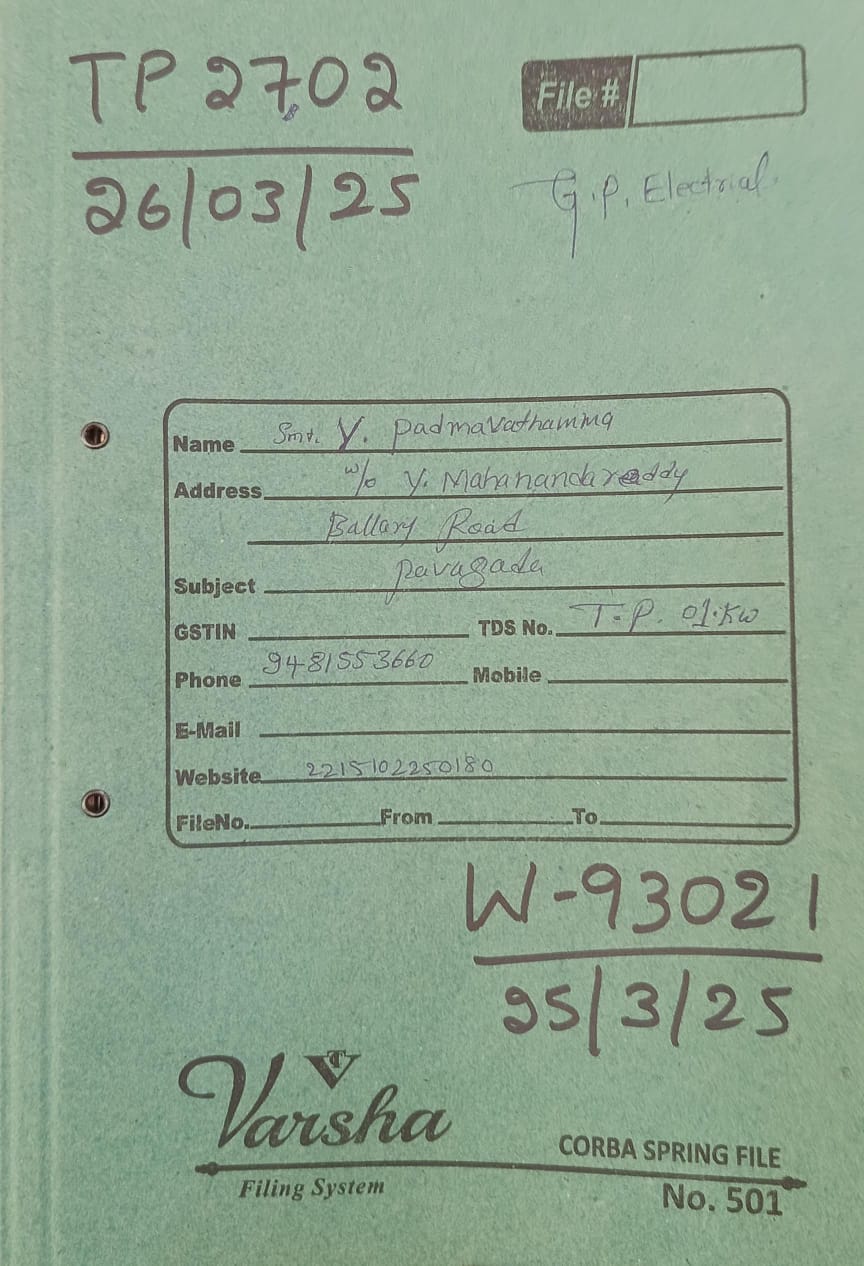 TP 2702
26/03/25
File #
G.P. Electrial.
Name Smt. Y. Padmavathamma
Address w/o Y. Mahanandareddy
Ballary Road
Subject Pavagada
GSTIN TDS No. T.P. 01.KW
Phone 9481553660 Mobile
E-Mail
Website 2215102250180
FileNo. From To
W-93021
25/3/25
Varsha
Filing System
CORBA SPRING FILE
No. 501